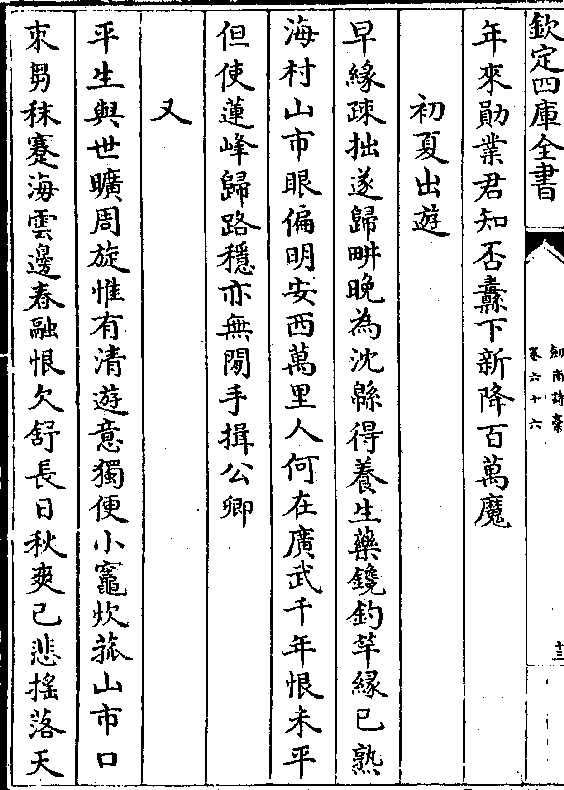 欽定四庫全書
劍南詩稾
卷六十六
十三
年來勛業君知否纛下新降百萬魔
初夏出遊
早緣疎拙遂歸畊晚為沈緜得養生藥鑱釣竿緣已熟
海村山市眼偏明安西萬里人何在廣武千年恨未平
但使蓮峰歸路穩亦無閒手揖公卿
又
平生與世曠周旋惟有清遊意獨便小竈炊菰山市口
束芻秣蹇海雲邊春融恨欠舒長日秋爽已悲搖落天